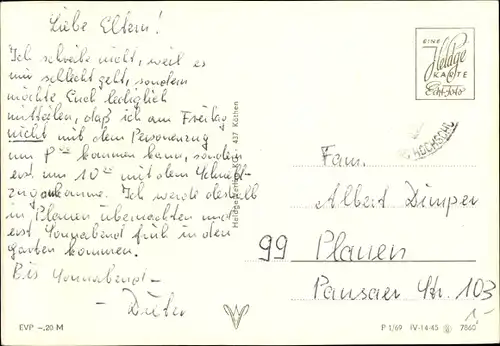 Liebe Eltern!
Ich schreibe nicht, weil es
mir schlecht geht, sondern
möchte Euch lediglich
mitteilen, daß ich am Freitag
nicht mit dem Personenzug
um kommen kann, sondern
erst um 10 mit dem Schnell-
zug ankomme. Ich werde deshalb
in Plauen übernachten und
erst Sonnabend früh in den
Garten kommen.
Bis Sonnabend -
- Dieter
EVP -.20 M
437 Köthen
EINE
Heldge
KARTE
Echt Foto
HOCHSCHU
Fam.
Albert Dimper
99 Plauen
Pausaer Str. 103
1-
P 1/69 IV-14-45 7860